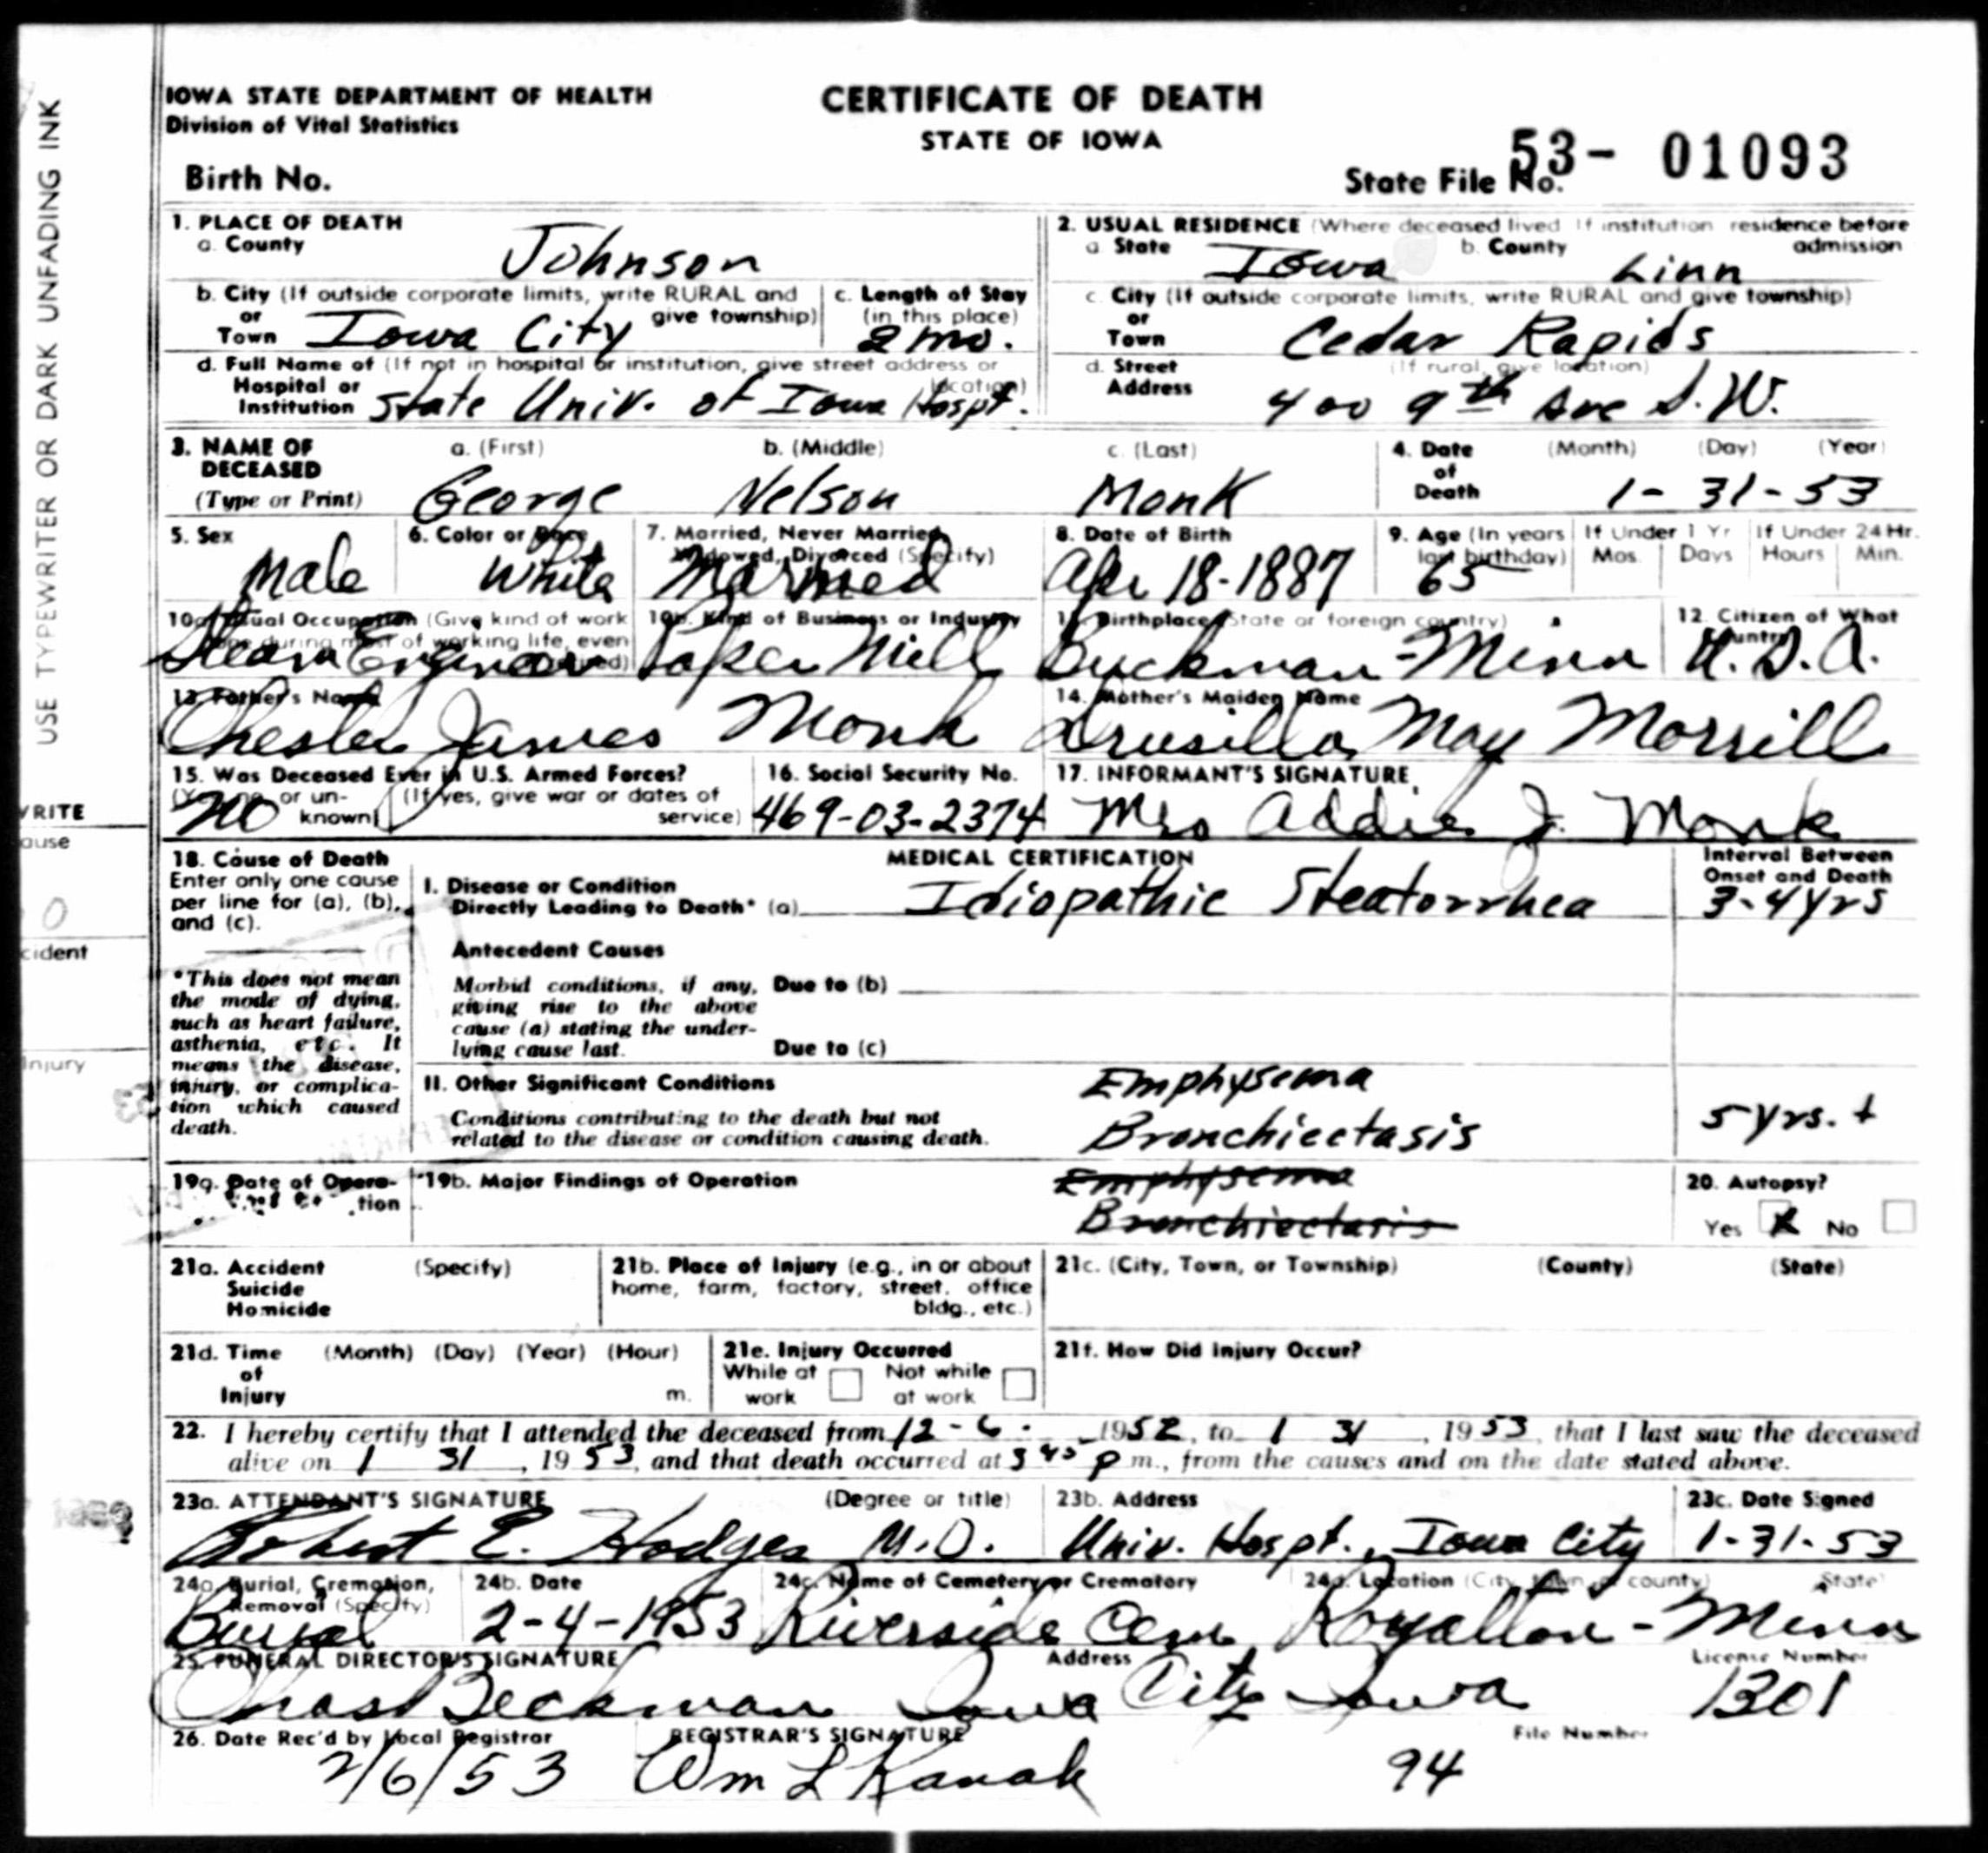 IOWA STATE DEPARTMENT OF HEALTH
Division of Vital Statistics
CERTIFICATE OF DEATH
STATE OF IOWA
Birth No.
State File No. 53- 01093
USE TYPEWRITER OR DARK UNFADING INK
1. PLACE OF DEATH
a. County Johnson
b. City (If outside corporate limits, write RURAL and
or give township)
Town Iowa City
c. Length of Stay
(in this place)
2 mo.
d. Full Name of (If not in hospital or institution, give street address or
Hospital or location)
Institution State Univ. of Iowa Hospt.
2. USUAL RESIDENCE (Where deceased lived If institution residence before
admission
a State Iowa b. County Linn
c. City (If outside corporate limits, write RURAL and give township)
or
Town Cedar Rapids
d. Street (If rural, give location)
Address 400 9th Ave S.W.
3. NAME OF
DECEASED
(Type or Print)
a. (First) George
b. (Middle) Nelson
c. (Last) Monk
4. Date (Month) (Day) (Year)
of
Death 1-31-53
5. Sex
Male
6. Color or Race
White
7. Married, Never Married,
Widowed, Divorced (Specify)
Married
8. Date of Birth
Apr 18-1887
9. Age (In years
last birthday)
65
If Under 1 Yr
Mos. Days
If Under 24 Hr.
Hours Min.
10a. Usual Occupation (Give kind of work
done during most of working life, even
retired)
Steam Engineer
10b. Kind of Business or Industry
Paper Mill
11. Birthplace (State or foreign country)
Buckman-Minn
12. Citizen of What
Country
U.S.A.
13. Father's Name
Chester James Monk
14. Mother's Maiden Name
Drusilla May Morrill
15. Was Deceased Ever in U.S. Armed Forces?
(Yes, no, or un- (If yes, give war or dates of
known) service)
no
16. Social Security No.
469-03-2374
17. INFORMANT'S SIGNATURE
Mrs Addie J. Monk
18. Cause of Death
Enter only one cause
per line for (a), (b),
and (c).
*This does not mean
the mode of dying,
such as heart failure,
asthenia, etc. It
means the disease,
injury, or complica-
tion which caused
death.
MEDICAL CERTIFICATION
Interval Between
Onset and Death
I. Disease or Condition
Directly Leading to Death* (a) Idiopathic Steatorrhea 3-4 yrs
Antecedent Causes
Morbid conditions, if any, Due to (b)
giving rise to the above
cause (a) stating the under-
lying cause last. Due to (c)
II. Other Significant Conditions
Conditions contributing to the death but not
related to the disease or condition causing death.
Emphysema
Bronchiectasis 5 yrs. +
19a. Date of Opera-
tion
19b. Major Findings of Operation
Emphysema
Bronchiectasis
20. Autopsy?
Yes X No
21a. Accident (Specify)
Suicide
Homicide
21b. Place of Injury (e.g., in or about
home, farm, factory, street, office
bldg., etc.)
21c. (City, Town, or Township) (County) (State)
21d. Time (Month) (Day) (Year) (Hour)
of
Injury m.
21e. Injury Occurred
While at Not while
work at work
21f. How Did Injury Occur?
22. I hereby certify that I attended the deceased from 12-6- 1952, to 1 31, 1953, that I last saw the deceased
alive on 1 31, 1953, and that death occurred at 3 45 p m., from the causes and on the date stated above.
23a. ATTENDANT'S SIGNATURE (Degree or title)
Robert E. Hodges M.D.
23b. Address
Univ. Hospt., Iowa City
23c. Date Signed
1-31-53
24a. Burial, Cremation,
Removal (Specify)
Burial
24b. Date
2-4-1953
24c. Name of Cemetery or Crematory
Riverside Cem
24d. Location (City, town, or county) State
Royalton-Minn
25. FUNERAL DIRECTOR'S SIGNATURE Address License Number
Chas Beckman Iowa City Iowa 1301
26. Date Rec'd by Local Registrar
2/6/53
REGISTRAR'S SIGNATURE
Wm L Kanak
File Number
94
WRITE
ause
0
cident
njury